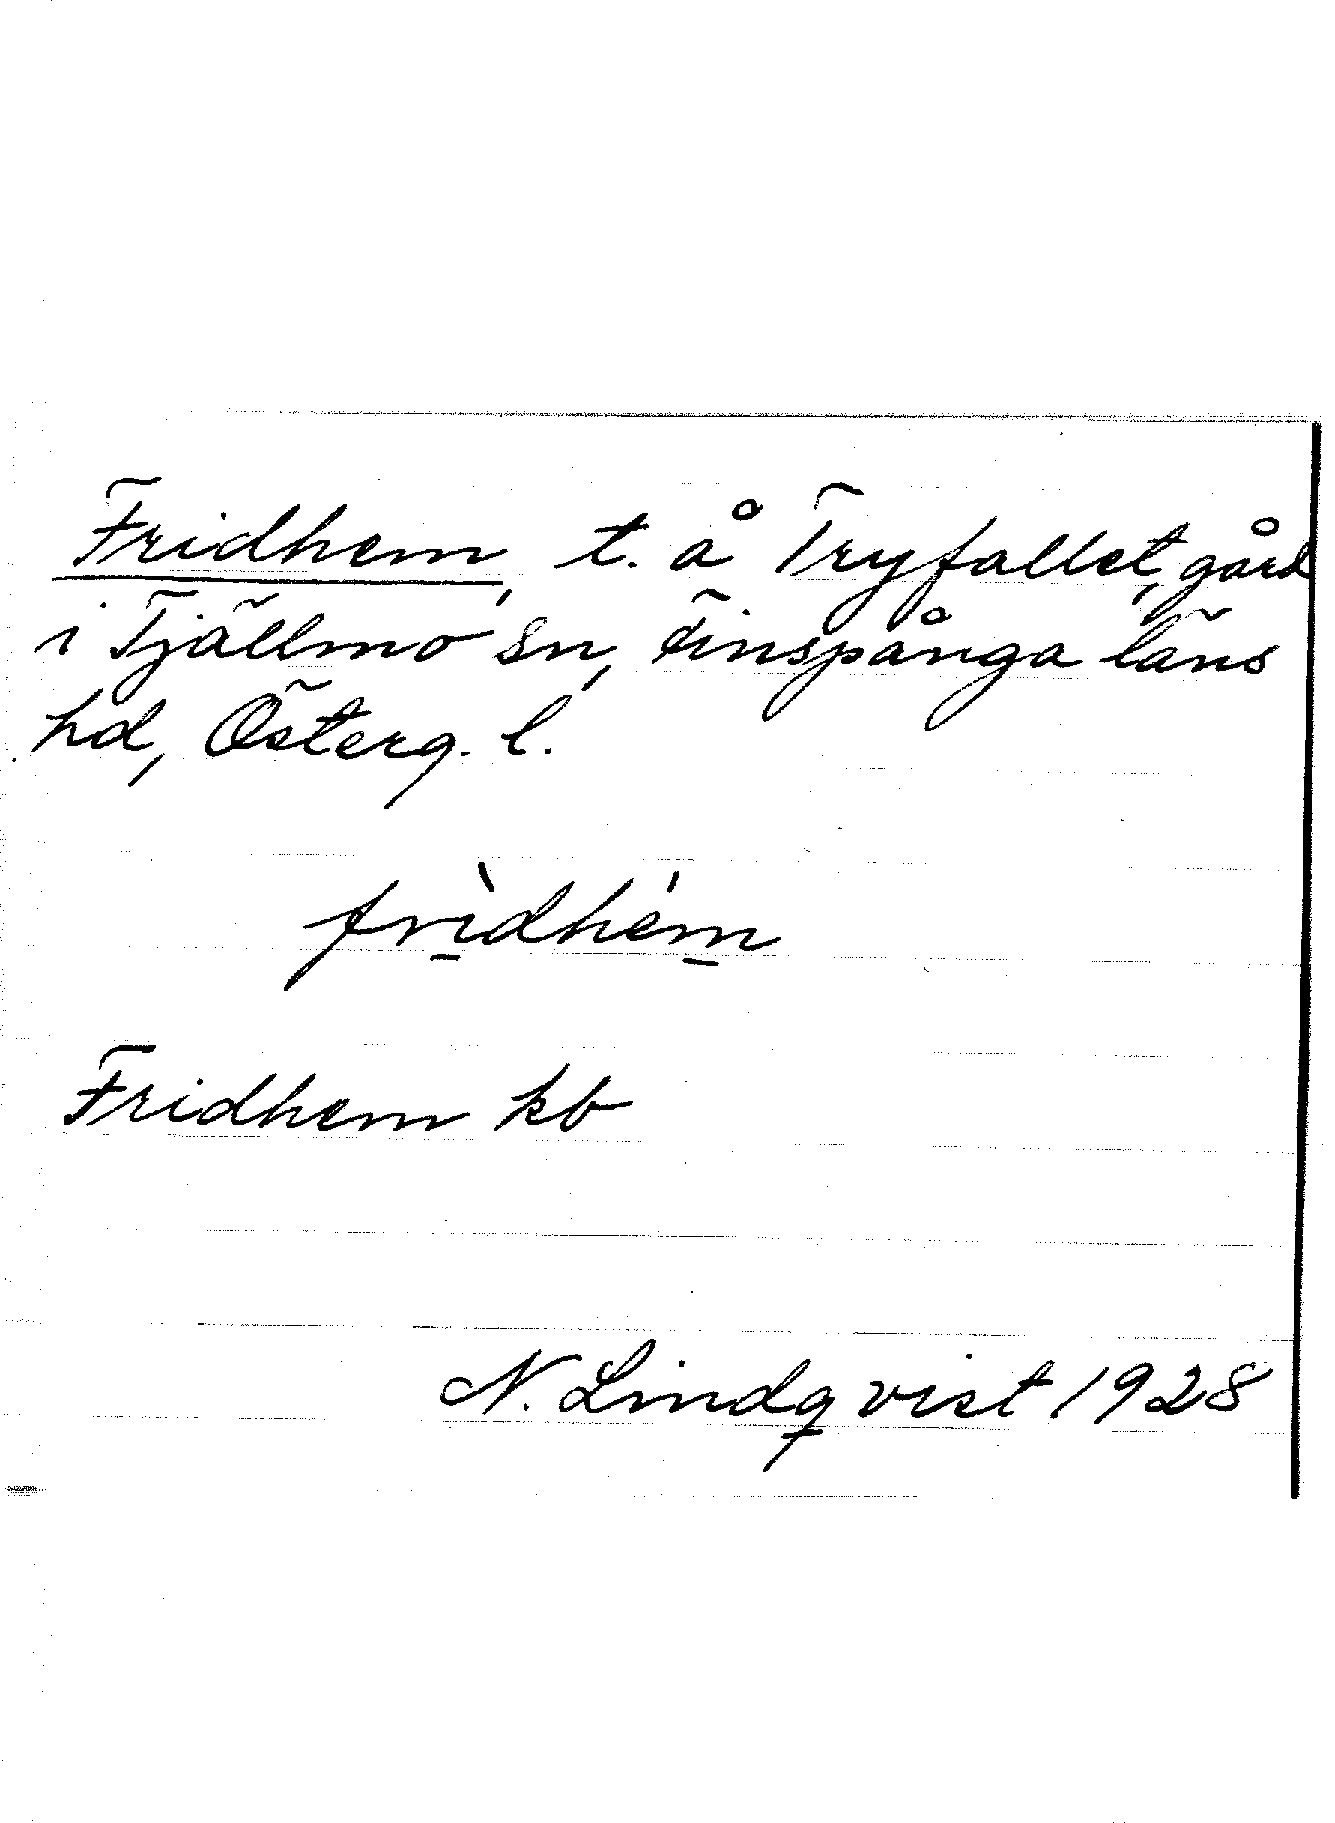 Fridhem, t. å Tryfallet, gård
i Tjällmo sn, Finspånga läns
hd, Österg. l.
frìdhém
Fridhem kb
N. Lindqvist 1928